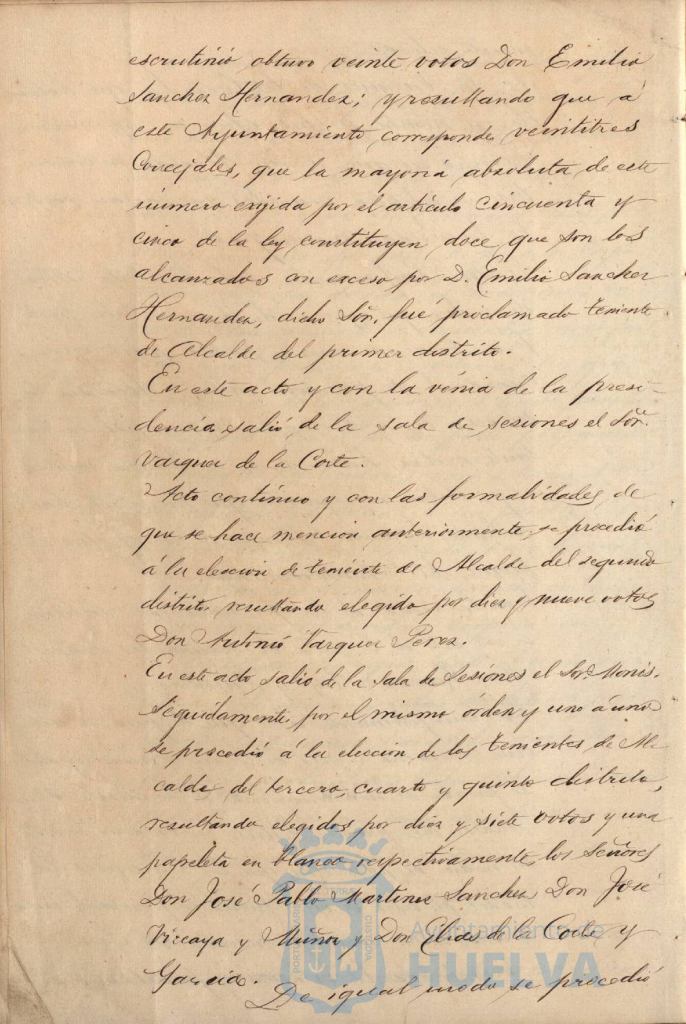 escrutinio obtuvo veinte votos Don Emilio
Sanchez Hernandez; y resultando que á
este Ayuntamiento corresponde veintitres
Concejales, que la mayoria absoluta de este
número exijida por el artículo cincuenta y
cinco de la ley constituyen doce que son los
alcanzados con exceso por D. Emilio Sanchez
Hernandez, dicho Sor. fué proclamado teniente
de Alcalde del primer distrito.
En este acto y con la vénia de la presi-
dencia salió de la sala de sesiones el Sor.
Vazquez de la Corte.
Acto continuo y con las formalidades de
que se hace mencion anteriormente se procedió
á la eleccion de teniente de Alcalde del segundo
distrito, resultando elegido por diez y nueve votos
Don Antonio Vazquez Perez.
En este acto salió de la sala de Sesiones el Sor. Monis.
Seguidamente por el mismo órden y uno á uno
se procedió á la eleccion de los tenientes de Al-
calde del tercero, cuarto y quinto distrito,
resultando elegidos por diez y siete votos y una
papeleta en blanco respectivamente los Señores
Don José Pablo Martinez Sanchez Don José
Vizcaya y Muñoz y Don Elias de la Corte y
Garcia.
De igual modo se procedió
Ayuntamiento de
HUELVA